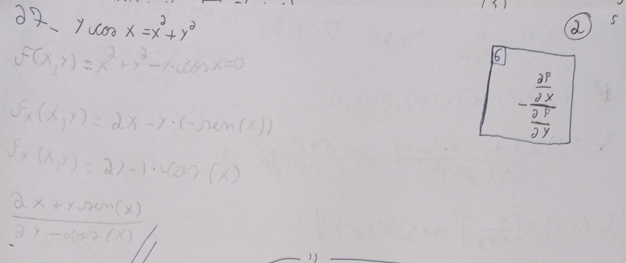 27- y cos x = x² + y²
F(x,y) = x² + y² - y·cos x = 0
Fx(x,y) = 2x - y·(-sen(x))
Fy(x,y) = 2y - 1·cos(x)
2x + y sen(x)
2y - cos(x)
2
6
- ∂F/∂x
∂F/∂y